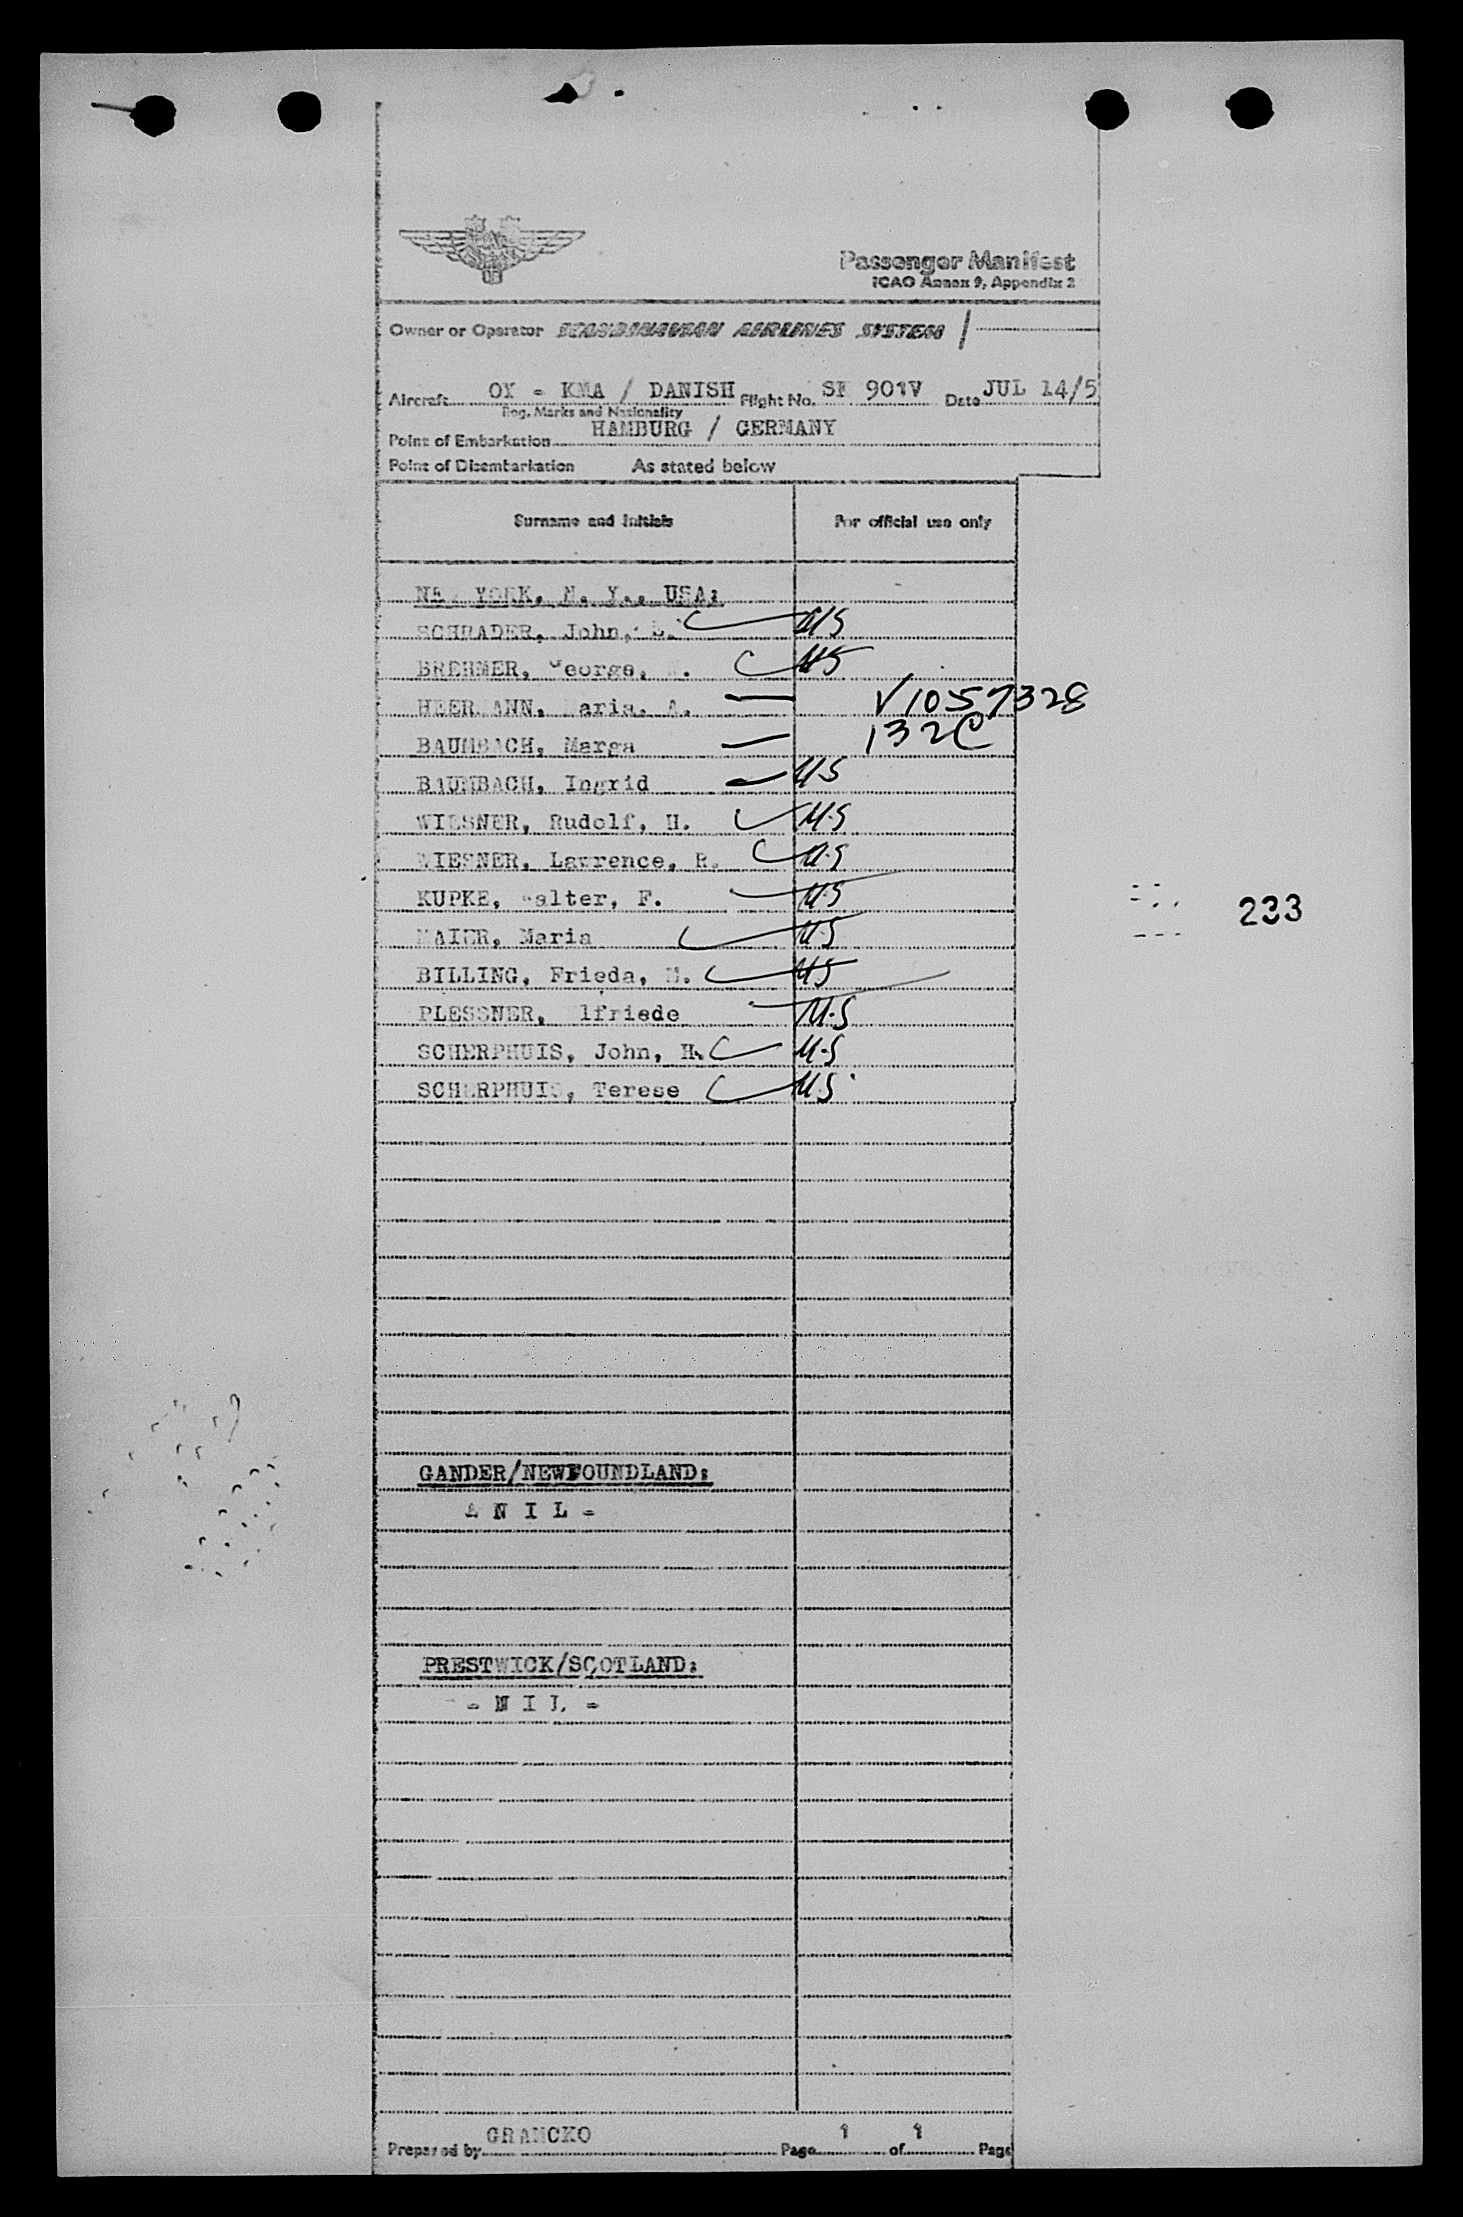 Passenger Manifest
ICAO Annex 9, Appendix 2
Owner or Operator SCANDINAVIAN AIRLINES SYSTEM /
Aircraft OY - KMA / DANISH Flight No. SK 901V Date JUL 14/5
Reg. Marks and Nationality
Point of Embarkation HAMBURG / GERMANY
Point of Disembarkation As stated below
Surname and Initials For official use only
NEW YORK, N. Y., USA:
SCHRADER, John, US
BREHMER, George, US
HEERMANN, Maria. A. V1057328
BAUMBACH, Marga 132C
BAUMBACH, Ingrid US
WIESNER, Rudolf, H. U.S
WIESNER, Lawrence, R. U.S
KUPKE, Walter, F. U.S
MAIER, Maria U.S
BILLING, Frieda, M. US
PLESSNER, Elfriede U.S
SCHERPHUIS, John, H. U.S
SCHERPHUIS, Terese U.S
233
GANDER/NEWFOUNDLAND:
- N I L -
PRESTWICK/SCOTLAND:
- N I L -
Prepared by GRAMCKO Page 1 of 1 Page